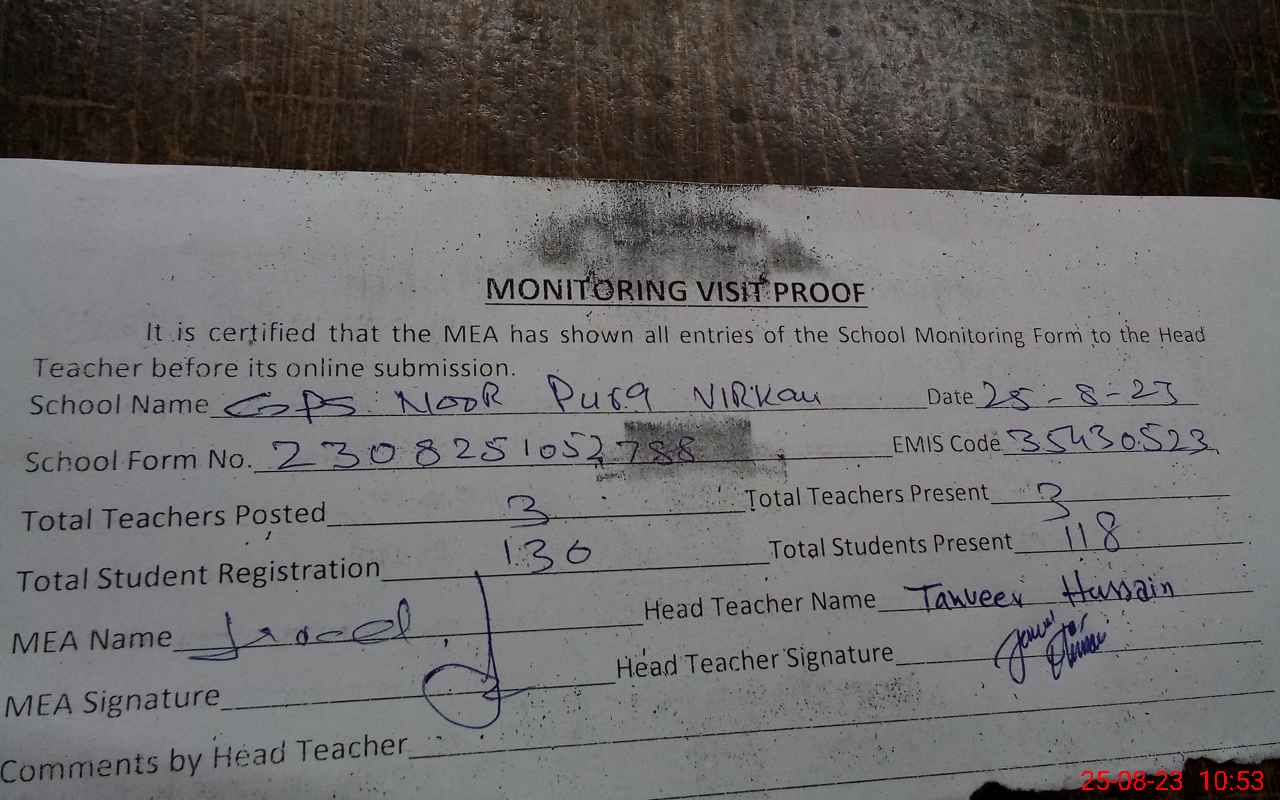 MONITORING VISIT PROOF
It is certified that the MEA has shown all entries of the School Monitoring Form to the Head
Teacher before its online submission.
School Name GPS NOOR Pura VIRKau Date 25-8-23
School Form No. 2308251052788 EMIS Code 35430523
Total Teachers Posted 3 Total Teachers Present 3
Total Student Registration 130 Total Students Present 118
MEA Name Head Teacher Name Tanveer Hussain
MEA Signature Head Teacher Signature
Comments by Head Teacher
25-08-23 10:53